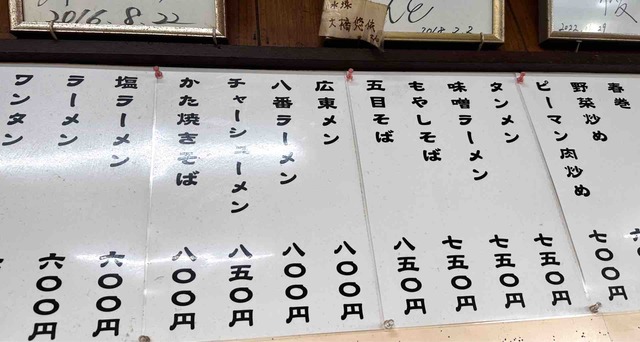 2016.8.22
春巻
野菜炒め
ピーマン肉炒め 七〇〇円
タンメン 七五〇円
味噌ラーメン 七五〇円
もやしそば 七五〇円
五目そば 八五〇円
広東メン 八〇〇円
八番ラーメン 八〇〇円
チャーシューメン 八五〇円
かた焼きそば 八〇〇円
塩ラーメン 六〇〇円
ラーメン 六〇〇円
ワンタン